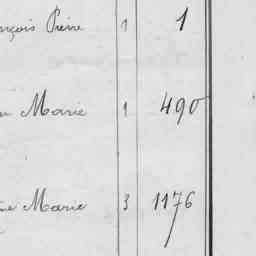 nçois Pierre 1 1
Marie 1 490
ne Marie 3 1176